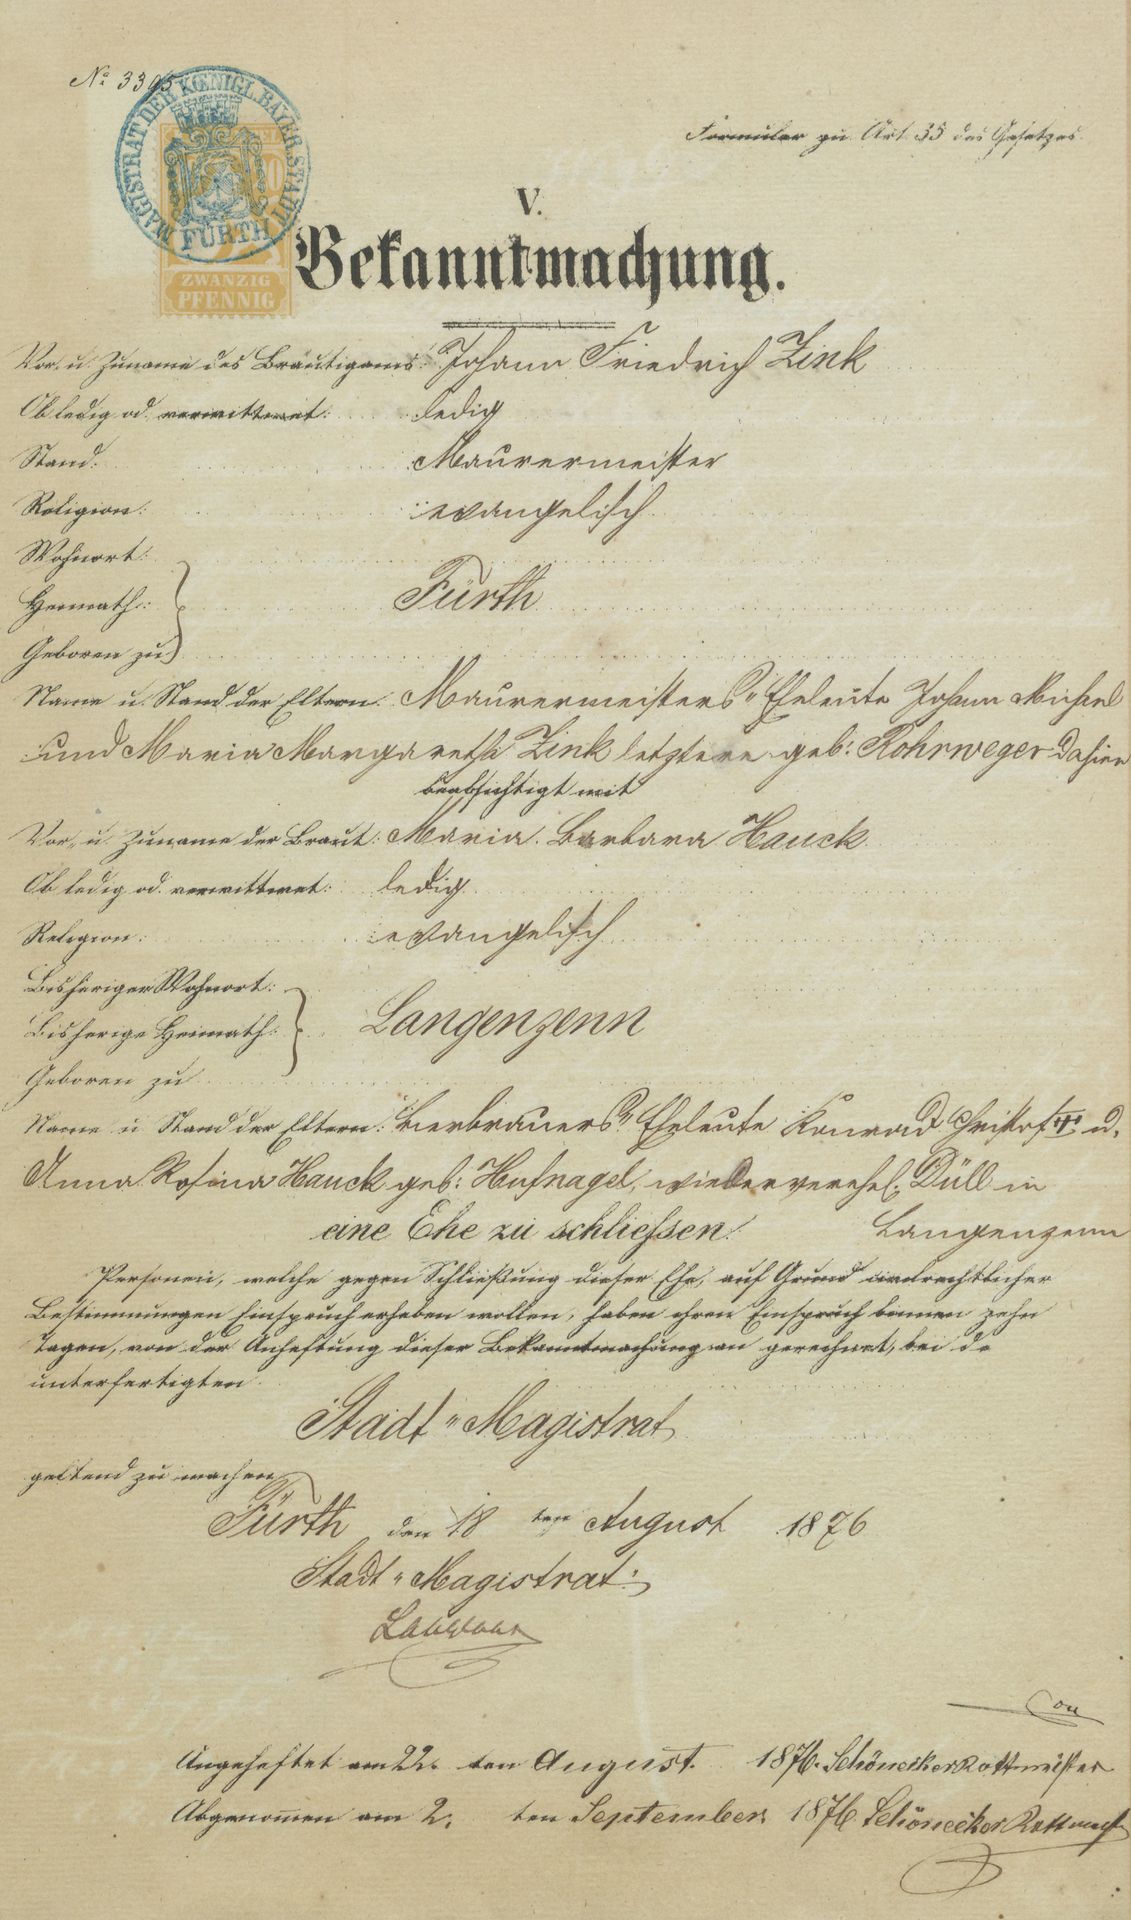 No 3395
MAGISTRAT DER KŒNIGL. BAYER. STADT
FÜRTH
ZWANZIG
PFENNIG
Formular zu Art. 35 des Gesetzes.
V.
Bekanntmachung.
Vor- u. Zuname des Bräutigams: Johann Friedrich Zink
Ob ledig od. verwittwet: ledig
Stand: Maurermeister
Religion: evangelisch
Wohnort:
Heimath: Fürth
Geboren zu
Name u. Stand der Eltern: Maurermeisters-Eheleute Johann Michael
und Maria Margaretha Zink letztere geb: Rohrweger dahier
beabsichtigt mit
Vor- u. Zuname der Braut: Maria Barbara Hauck
Ob ledig od. verwittwet: ledig
Religion: evangelisch
Bisheriger Wohnort:
Bisherige Heimath: Langenzenn
Geboren zu
Name u. Stand der Eltern: Bierbrauers-Eheleute Konrad Christof † u.
Anna Rosina Hauck geb: Hufnagel, wiederverehel. Düll in
eine Ehe zu schliessen. Langenzenn
Personen, welche gegen Schließung dieser Ehe, auf Grund civilrechtlicher
Bestimmungen Einspruch erheben wollen, haben ihren Einspruch binnen zehn
Tagen, von der Anheftung dieser Bekanntmachung an gerechnet, bei de
unterfertigten
Stadt-Magistrat
geltend zu machen
Fürth den 18 ten August 1876
Stadt-Magistrat:
Angeheftet am 22. ten August. 1876. Schönecker Rottmeister
Abgenommen am 2. ten September 1876 Schönecker Rottmeist